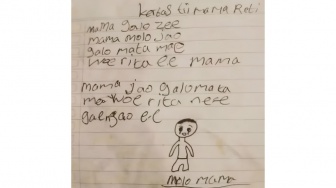 kertas tii mama Roti
mama galo zee
mama molo jao
galo mata mae
woe rita ee mama
mama jao galo mata
ma woe rita nese
gaengao ee
molo mama